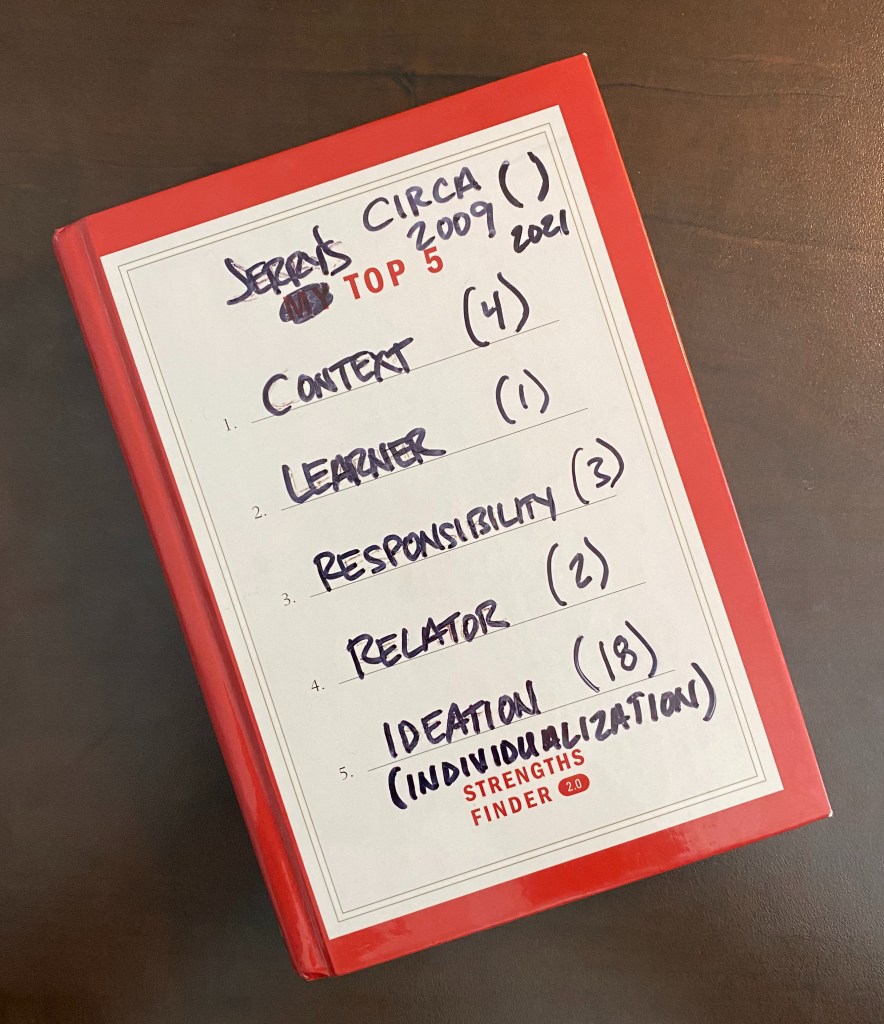 CIRCA ( )
JERRY'S 2009 2021
MY TOP 5
1. CONTEXT (4)
2. LEARNER (1)
3. RESPONSIBILITY (3)
4. RELATOR (2)
5. IDEATION (18)
(INDIVIDUALIZATION)
STRENGTHS
FINDER 2.0